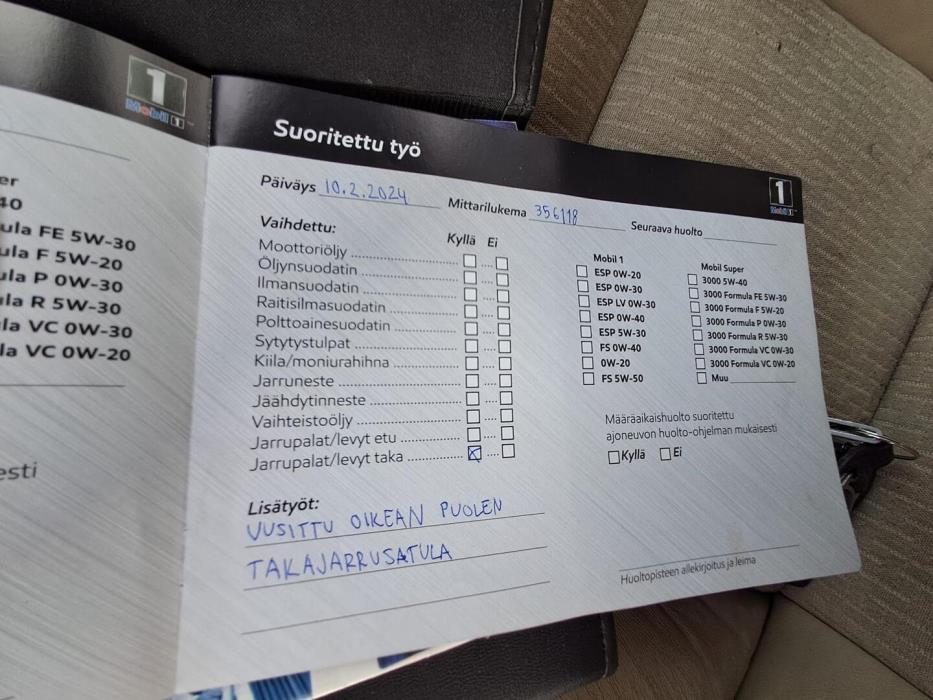 1
Mobil 1
er
40
ula FE 5W-30
ula F 5W-20
la P 0W-30
la R 5W-30
la VC 0W-30
la VC 0W-20
esti
Suoritettu työ
1
Mobil 1
Päiväys 10.2.2024 Mittarilukema 356118 Seuraava huolto
Vaihdettu: Kyllä Ei
Moottoriöljy
Öljynsuodatin
Ilmansuodatin
Raitisilmasuodatin
Polttoainesuodatin
Sytytystulpat
Kiila/moniurahihna
Jarruneste
Jäähdytinneste
Vaihteistoöljy
Jarrupalat/levyt etu
Jarrupalat/levyt taka
Lisätyöt:
UUSITTU OIKEAN PUOLEN
TAKAJARRUSATULA
Mobil 1
ESP 0W-20
ESP 0W-30
ESP LV 0W-30
ESP 0W-40
ESP 5W-30
FS 0W-40
0W-20
FS 5W-50
Mobil Super
3000 5W-40
3000 Formula FE 5W-30
3000 Formula F 5W-20
3000 Formula P 0W-30
3000 Formula R 5W-30
3000 Formula VC 0W-30
3000 Formula VC 0W-20
Muu
Määräaikaishuolto suoritettu
ajoneuvon huolto-ohjelman mukaisesti
Kyllä Ei
Huoltopisteen allekirjoitus ja leima